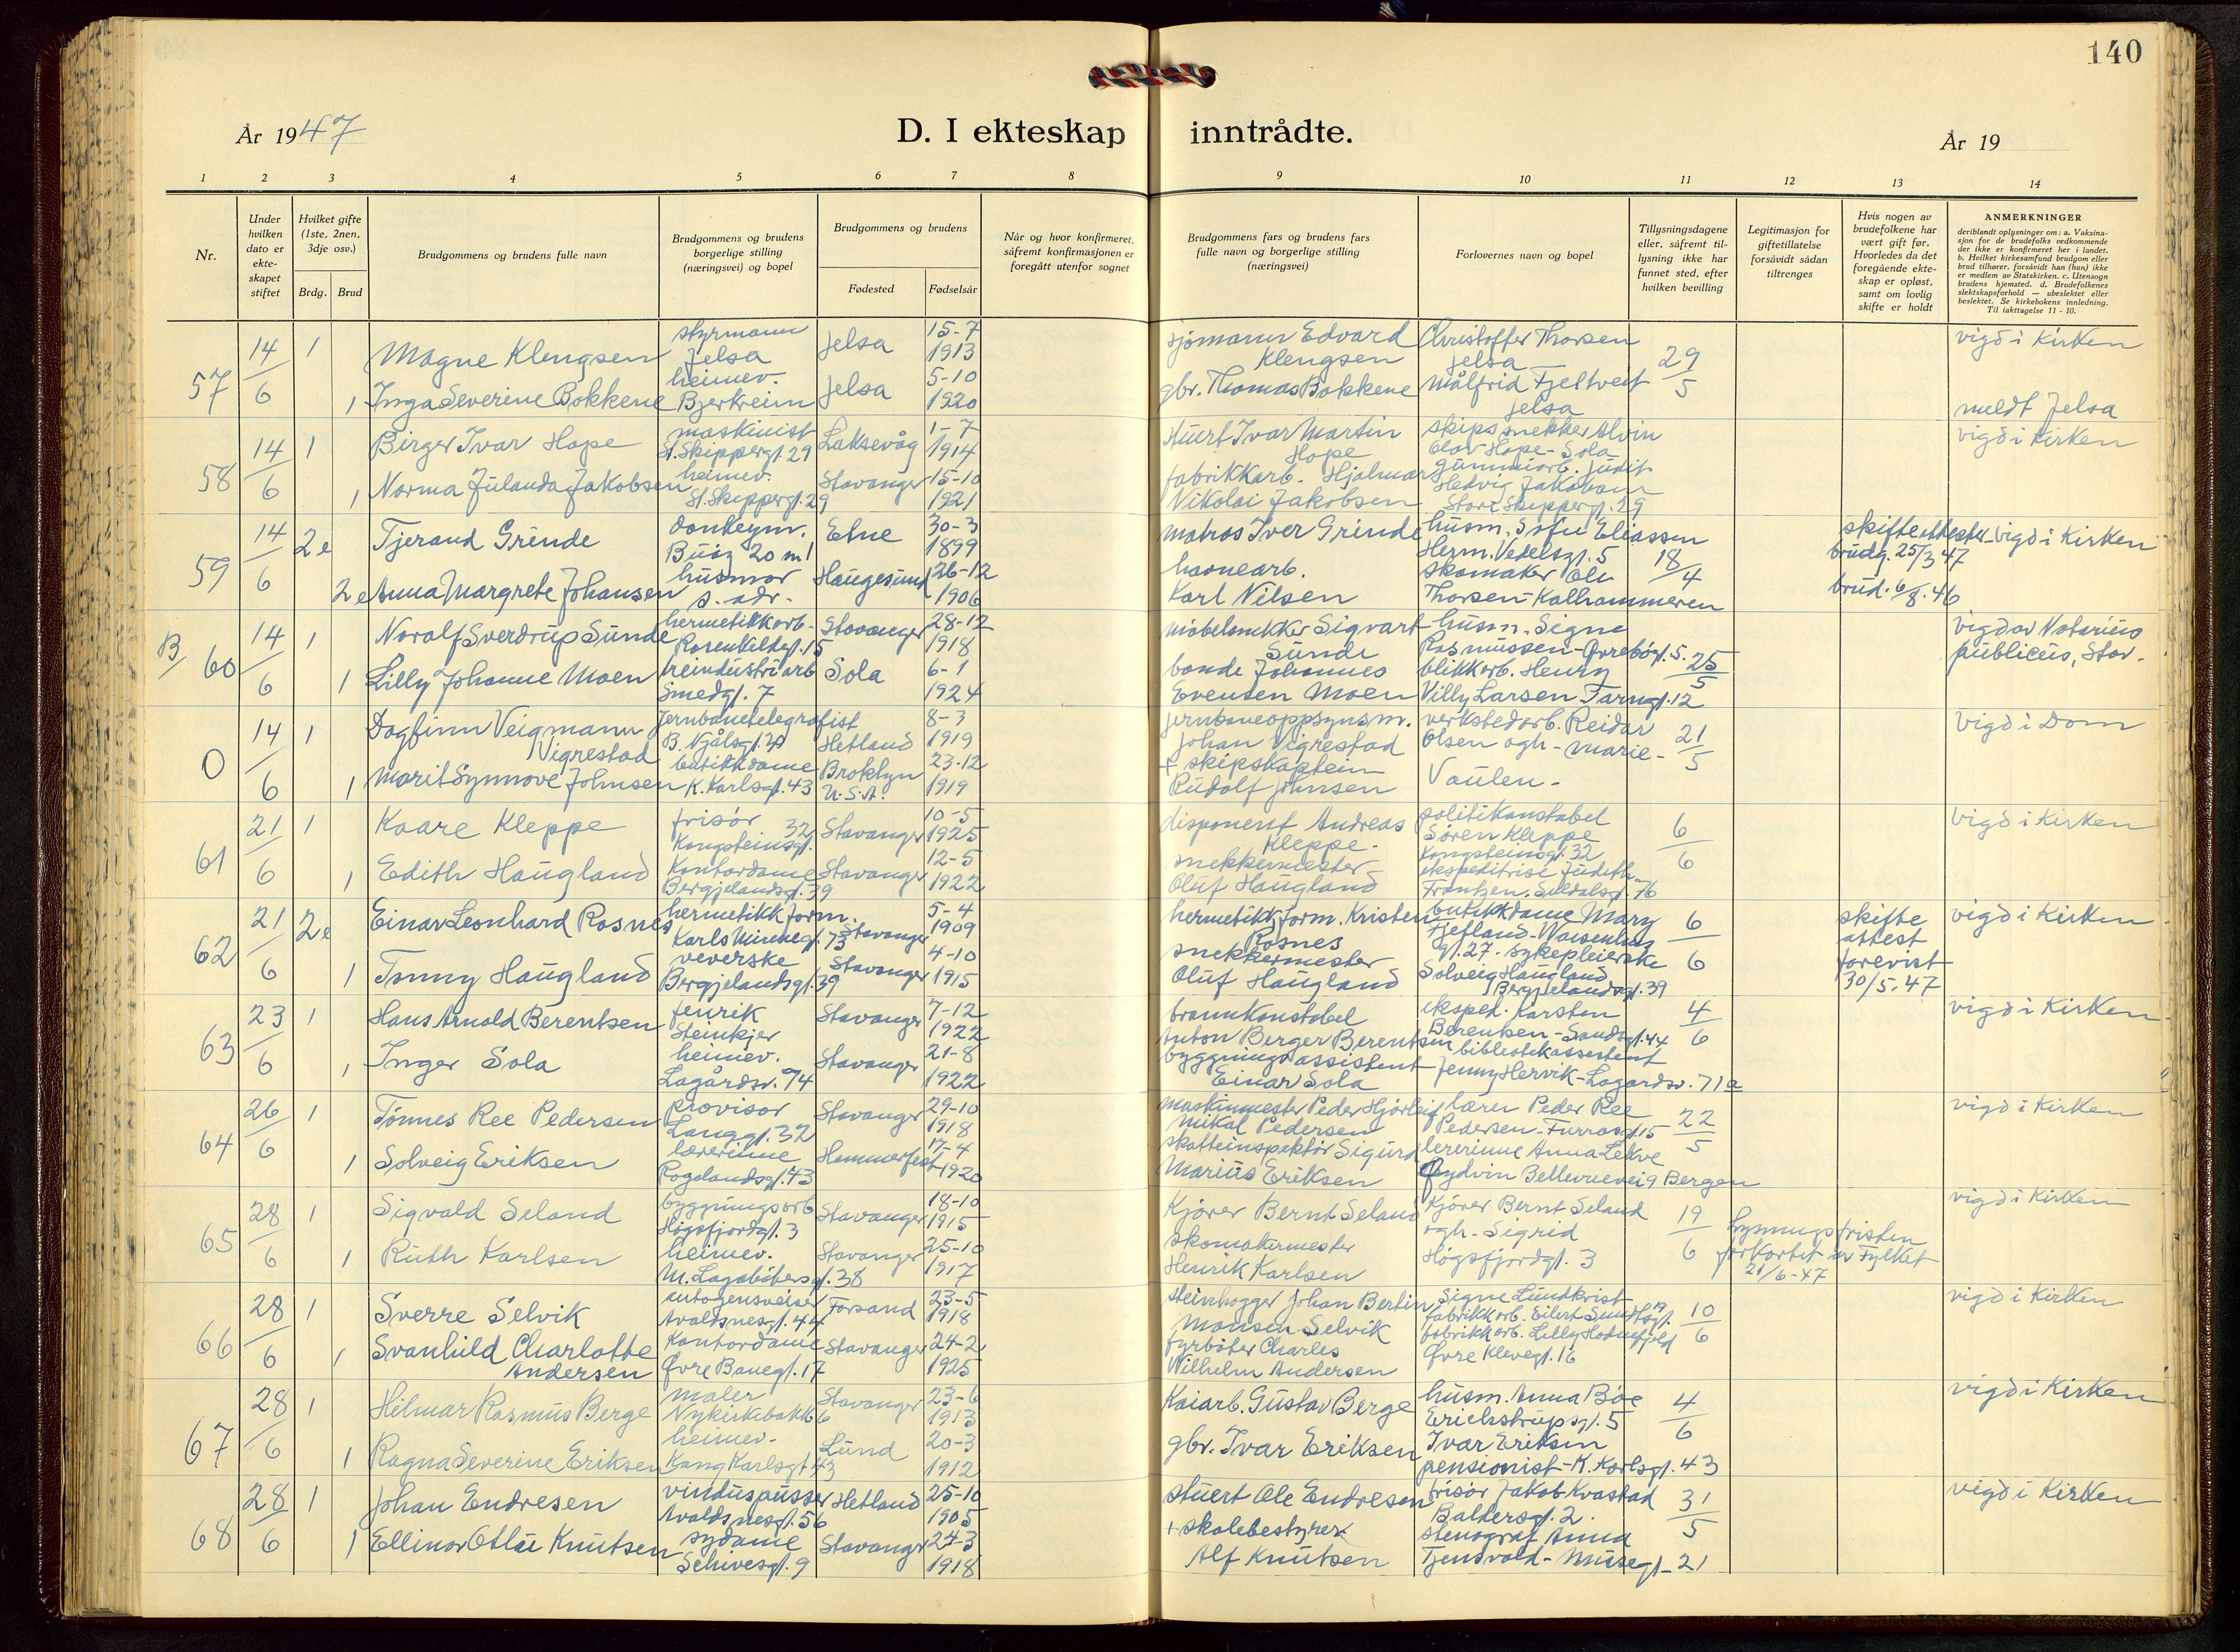 140
År 1947
D. I ekteskap inntrådte.
År 19
1 2 3 4 5 6 7 8 9 10 11 12 13 14
Nr.
Under hvilken dato er ekte- skapet stiftet
Hvilket gifte (1ste, 2nen, 3dje osv.)
Brdg. Brud
Brudgommens og brudens fulle navn
Brudgommens og brudens borgerlige stilling (næringsvei) og bopel
Brudgommens og brudens
Fødested Fødselsår
Når og hvor konfirmeret, såfremt konfirmasjonen er foregått utenfor sognet
Brudgommens fars og brudens fars fulle navn og borgerlige stilling (næringsvei)
Forlovernes navn og bopel
Tillysningsdagene eller, såfremt til- lysning ikke har funnet sted, efter hvilken bevilling
Legitimasjon for giftetillatelse forsåvidt sådan tiltrenges
Hvis nogen av brudefolkene har vært gift før. Hvorledes da det foregående ekte- skap er opløst, samt om lovlig skifte er holdt
ANMERKNINGER
deriblandt oplysninger om: a. Vaksina- sjon for de brudefolks vedkommende der ikke er konfirmeret her i landet. b. Hvilket kirkesamfund brudgom eller brud tilhører, forsåvidt han (hun) ikke er medlem av Statskirken. c. Utensogn brudens hjemsted. d. Brudefolkenes slektskapsforhold — ubeslektet eller beslektet. Se kirkebokens innledning. Til iakttagelse 11 - 10.
57 14/6 1 Magne Klengsen styrmann Jelsa Jelsa 15-7 1913 sjømann Edvard Klengsen Christoffer Thorsen Jelsa 29/5 vigd i Kirken
1 Inga Severine Bokkene heimev. Bjerkreim Jelsa 5-10 1920 gbr. Thomas Bokkene Målfrid Fjeltveit Jelsa meldt Jelsa
58 14/6 1 Birger Ivar Hope maskinist St. Skippergt. 29 Laksevåg 1-7 1914 stuert Ivar Martin Hope skipssnekker Alvin Olav Hope - Sola vigd i Kirken
1 Norma Julanda Jakobsen heimev. St. Skippergt. 29 Stavanger 15-10 1921 fabrikkarb. Hjalmar Nikolai Jakobsen gummiarb. Judit Hedvig Jakobsen Store Skippergt. 29
59 14/6 2e Tjerand Grinde donkeym. Buøg 20 m 1 Etne 30-3 1899 matros Iver Grinde husm. Sofie Eliassen Herm. Vedelsgt. 5 18/4 skifteattester brudg. 25/3 47 vigd i Kirken
2e Anna Margrete Johansen husmor s. adr. Haugesund 26-12 1906 havnearb. Karl Nilsen skomaker Ole Thorsen - Kalhammeren brud. 6/8. 46
B/60 14/6 1 Noralf Sverdrup Sunde hermetikkarb. Rosenkildegt. 15 Stavanger 28-12 1918 møbelsnekker Sigvart Sunde husm. Signe Rasmussen - Orrebøgt. 5. 25/5 vigd av Notarius publicus, Stav.
1 Lilly Johanne Moen Smedgt. 7 Sola 6-1 1924 bonde Johannes Evensen Moen blikkarb. Henry Villy Larsen Tarngt. 12
0 14/6 1 Dagfinn Veigmann Vigrestad Jernbanetelegrafist B. Njålsgt. Hetland 8-3 1919 jernbaneoppsynsm. Johan Vigrestad verkstedarb. Reidar Olsen ogh. Marie - Vaulen - 21/5 vigd i Dom
1 Marit Synnøve Johnsen butikkdame K. Karlsgt. 43 Broklyn U.S.A. 23-12 1919 + skipskaptein Rudolf Johnsen
61 21/6 1 Kaare Kleppe frisør Kongsteinsgt. 32 Stavanger 10-5 1925 disponent Andreas Kleppe - politikonstabel Søren Kleppe Kongsteinsgt. 32 6/6 vigd i Kirken
1 Edith Haugland Kontordame Bergjelandsgt. 39 Stavanger 12-5 1922 snekkermester Oluf Haugland ekspeditrise Judith Frantzen. Suldalsgt. 76
62 21/6 2e Einar Leonhard Rosnes hermetikkform. Karls Minnegt. 73 Stavanger 5-4 1909 hermetikkform. Kristen Rosnes butikkdame Mary Hetland - Waisenhusgt. 27 - sykepleierske 6/6 skifte attest forevist 30/5. 47 vigd i Kirken
1 Tonny Haugland veverske Bergjelandsgt. 39 Stavanger 4-10 1915 snekkermester Oluf Haugland Solveig Haugland Bergjelandsgt. 39
63 23/6 1 Hans Arnold Berentsen fenrik Steinkjer Stavanger 7-12 1922 brannkonstabel Anton Berger Berentsen eksped. Karsten Berentsen - Sandsgt. 44 4/6 vigd i Kirken
1 Inger Sola heimev. Lagårdsv. 74 Stavanger 21-8 1922 byggningsassistent Einar Sola bibliotekassistent Jenny Hervik - Lagårdsv. 71a
64 26/6 1 Tønnes Ree Pedersen provisor Langgt. 32 Stavanger 29-10 1918 maskinmester Peder Hjørleif Mikal Pedersen lærer Peder Ree Pedersen - Furrasgt. 15 22/5 vigd i Kirken
1 Solveig Eriksen lærerinne Rogalandsgt. 43 Hammerfest 17-4 1920 skatteinspektør Sigurd Marius Eriksen lererinne Anna Lekve Bellevuevei 9 Bergen
65 28/6 1 Sigvald Seland byggningsarb Høgsfjordgt. 3 Stavanger 18-10 1915 Kjører Bernt Seland Kjører Bernt Seland ogh. Sigrid Høgsfjordgt. 3 19/6 Lysningsfristen forkortet av Fylket 21/6-47 vigd i Kirken
1 Ruth Karlsen heimev. M. Lagabøtersgt. 38 Stavanger 25-10 1917 skomakermester Henrik Karlsen
66 28/6 1 Sverre Selvik autogensveiser Avaldsnesgt. 44 Forsand 23-5 1918 steinhogger Johan Bertin Monsen Selvik Signe Lundkvist fabrikkarb. Eilert Sundtsgt. 19 10/6 vigd i Kirken
1 Svanhild Charlotte Andersen Kontordame Øvre Banegt. 17 Stavanger 24-2 1925 fyrbøter Charles Wilhelm Andersen fabrikkarb. Lilly Hodnefjeld Øvre Klevegt. 16
67 28/6 1 Hilmar Rasmus Berge maler Nykirkebakk 6 Stavanger 23-6 1913 Kaiarb. Gustav Berge husm. Anna Bøe Erichstrupsgt. 5 4/6 vigd i Kirken
1 Ragna Severine Eriksen heimev. Kong Karlsgt 43 Lund 20-3 1912 gbr. Ivar Eriksen Ivar Eriksen pensionist - K. Karlsgt. 43
68 28/6 1 Johan Endresen vinduspusser Avaldsnesgt. 56 Hetland 25-10 1905 stuert Ole Endresen frisør Jakob Kvastad Baldersgt. 2. 31/5 vigd i Kirken
1 Ellinor Otlu Knutsen sydame Schivesgt. 9 Stavanger 24-3 1918 + skolebestyrer Alf Knutsen stenograf Anna Tjensvold - Musegt. 21